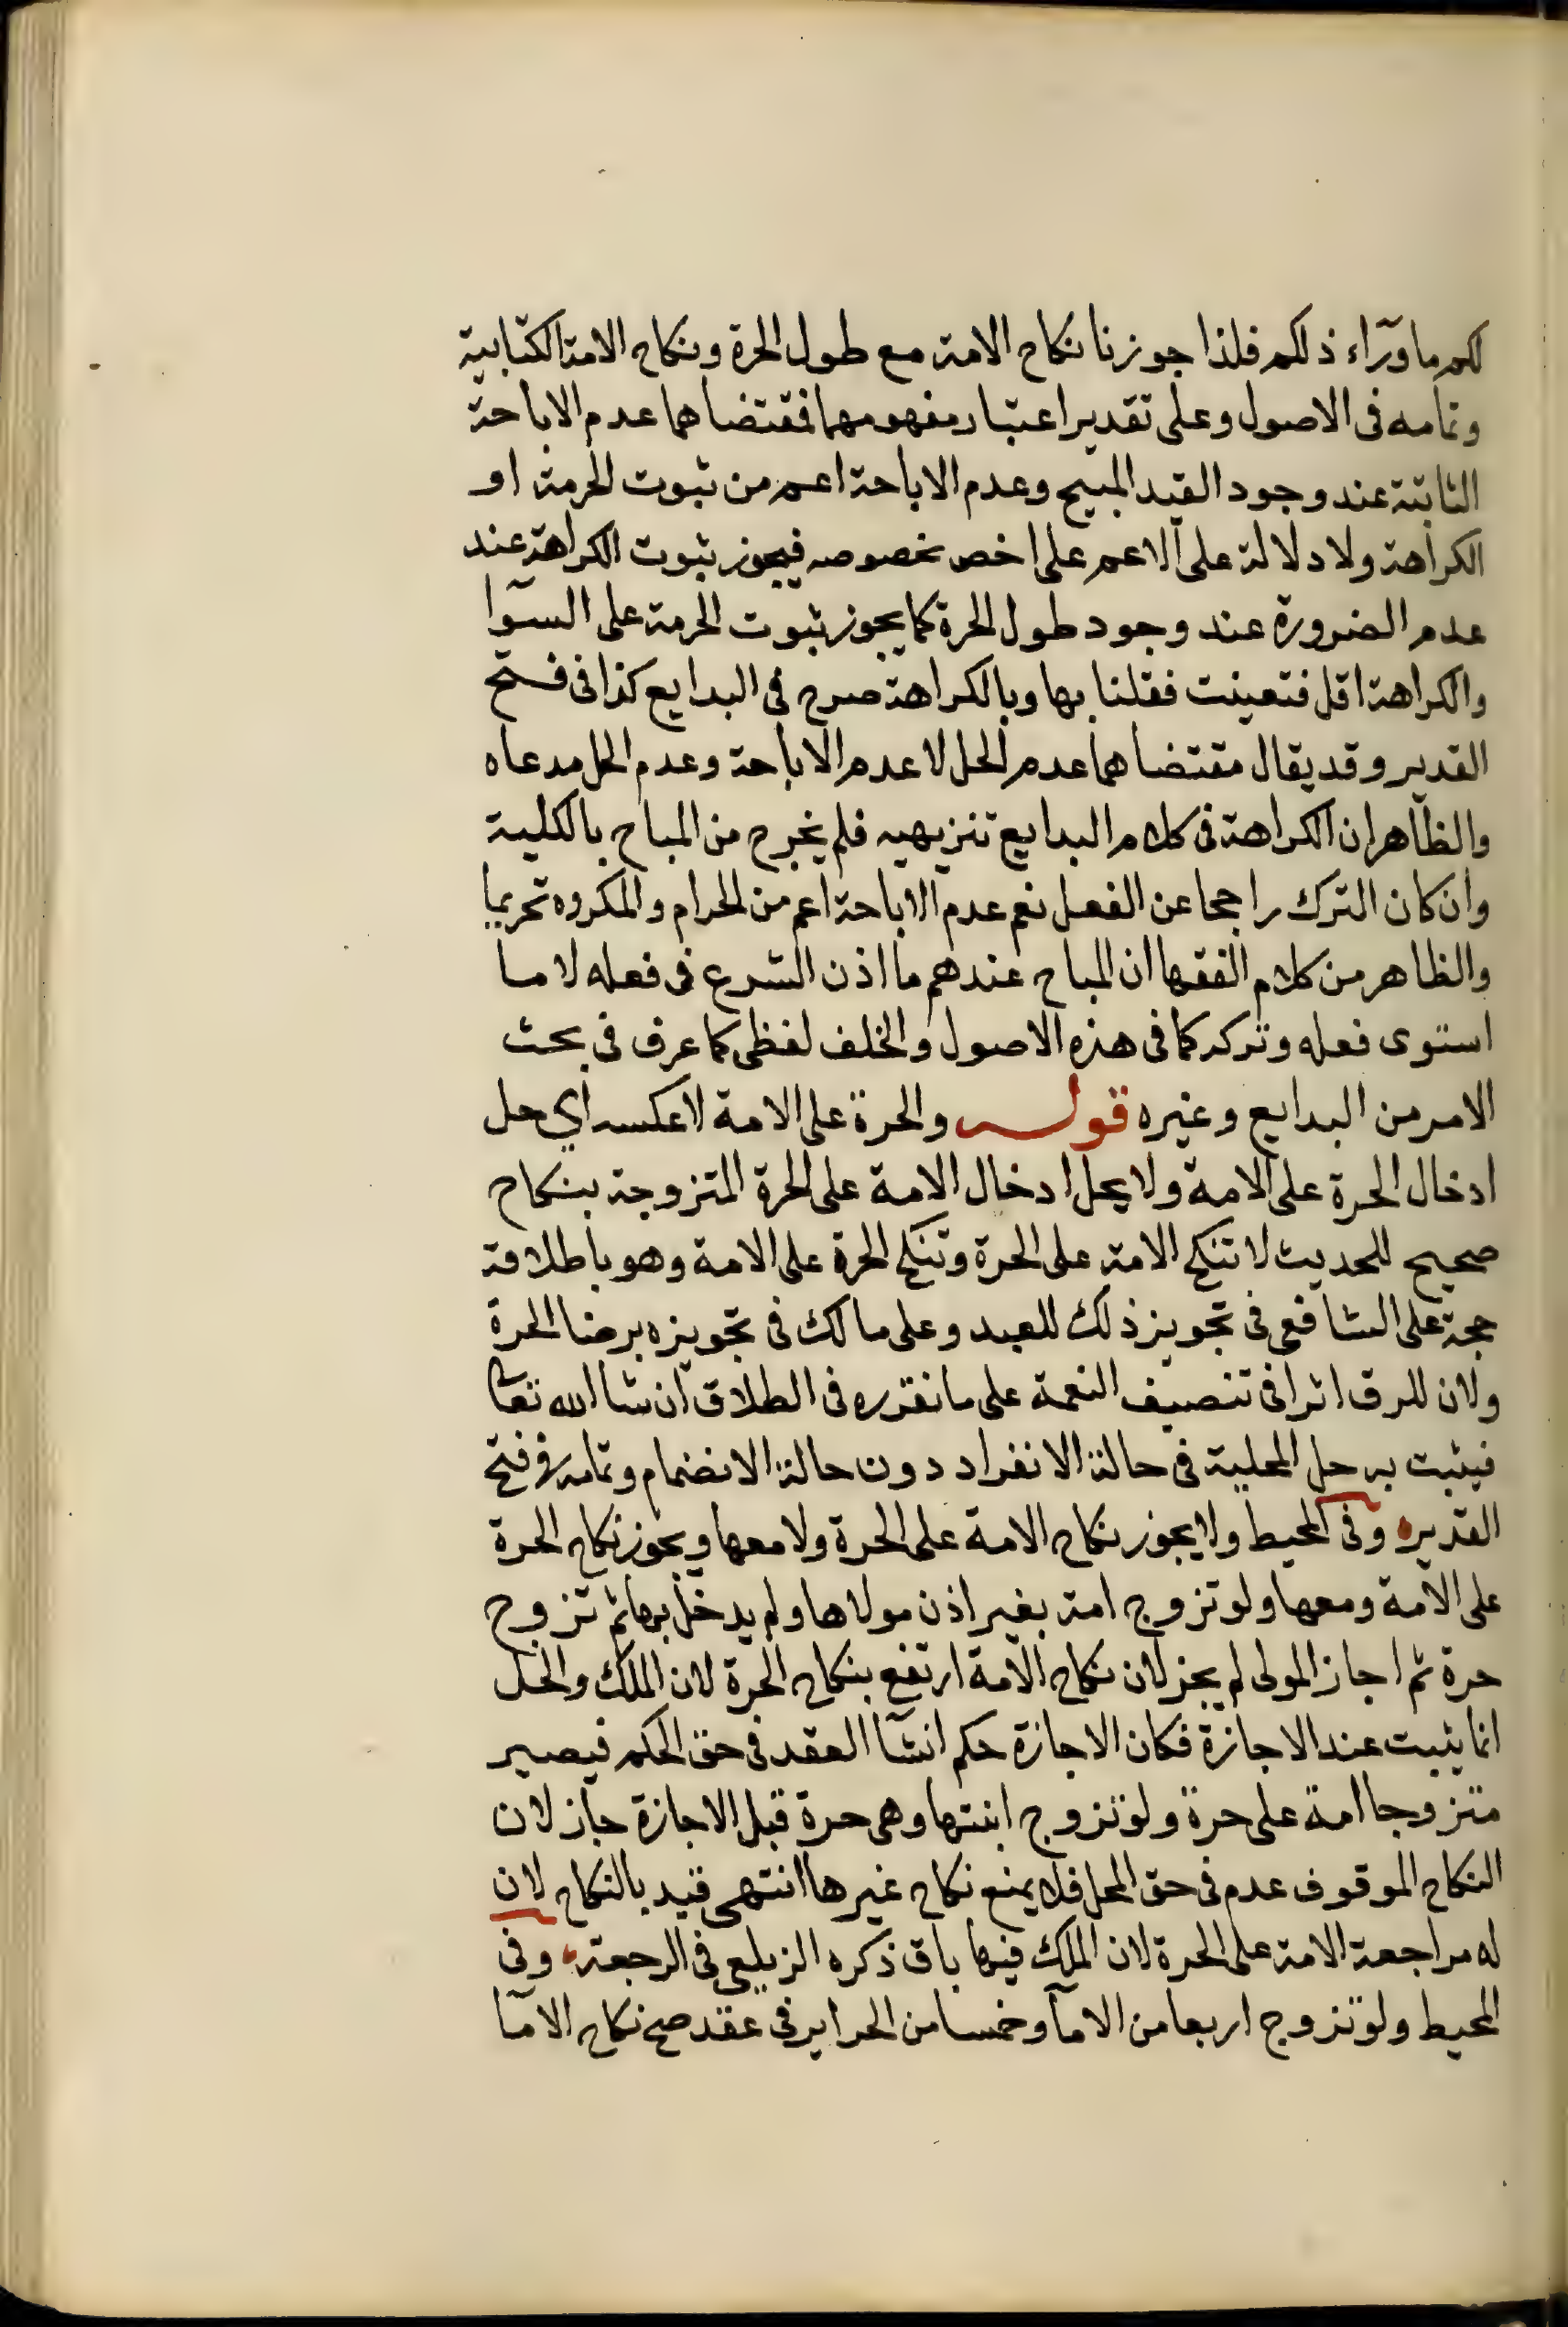 لكم ما ورآء ذلكم فلذا جوزنا نكاح الامة مع طول الحرة ونكاح الامة الكتابية
وتمامه فى الاصول وعلى تقدير اعتبار مفهومهما فمقتضاهما عدم الاباحة
الثابتة عند وجود القيد المبيح وعدم الاباحة اعم من ثبوت الحرمة او
الكراهة ولا دلالة على الاعم على اخص بخصوصه فيجوز ثبوت الكراهة عند
عدم الضرورة عند وجود طول الحرة كما يجوز ثبوت الحرمة على السوآ
والكراهة اقل فتعينت فقلنا بها وبالكراهة صرح فى البدايع كذا فى فتح
القدير وقد يقال مقتضاهما عدم الحل لا عدم الاباحة وعدم الحل مدعاه
والظاهر ان الكراهة فى كلام البدايع تنزيهيه فلم يخرج من المباح بالكلية
وان كان الترك راجحا عن الفعل نعم عدم الاباحة اعم من الحرام والمكروه تحريما
والظاهر من كلام الفقها ان المباح عندهم ما اذن الشرع فى فعله لا ما
استوى فعله وتركه كما فى هذه الاصول والخلف لفظى كما عرف فى بحث
الامر من البدايع وغيره قوله والحرة على الامة لا عكسه اي حل
ادخال الحرة على الامة ولا يحل ادخال الامة على الحرة المتزوجة بنكاح
صحيح للحديث لا تنكح الامة على الحرة وتنكح الحرة على الامة وهو باطلاقه
حجة على الشافعى فى تجويز ذلك للعبد وعلى مالك فى تجويزه برضا الحرة
ولان للرق اثرا فى تنصيف النعمة على ما نقرره فى الطلاق ان شا الله تعا
فيثبت به حل المحلية فى حالة الانفراد دون حالة الانضمام وتمامه فى فتح
القدير وفى المحيط ولا يجوز نكاح الامة على الحرة ولا معها ويجوز نكاح الحرة
على الامة ومعها ولو تزوج امة بغير اذن مولاها ولم يدخل بها ثم تزوج
حرة ثم اجاز المولى لم يجز لان نكاح الامة ارتفع بنكاح الحرة لان الملك والحل
انما يثبت عند الاجازة فكان الاجازة حكم انشآ العقد فى حق الحكم فيصير
متزوجا امة على حرة ولو تزوج ابنتها وهى حرة قبل الاجازة جاز لان
النكاح الموقوف عدم فى حق المحل فلا يمنع نكاح غيرها انتهى قيد بالنكاح لان
له مراجعة الامة على الحرة لان الملك فيها باق ذكره الزيلعى فى الرجعة وفى
المحيط ولو تزوج اربعا من الامآ وخمسا من الحراير فى عقد صح نكاح الامآ